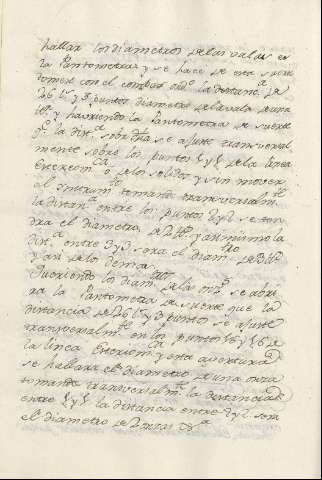 hallar los diametros de las valas en
la Pantometra y se haze de esta suerte
tomese con el compas la distanª de
26 ls y 3 puntos diametro de la vala de una
lbª y haviendo la Pantometra de suerte
q la distª sobre dha se ajuste transversal
mente sobre los puntos 1 y 1 de la linea
Estereomca o de los solidos y sin mover
el instrumto tomando transversalmte
la distanª entre los puntos 2 y 2 se ten
dra el diametro de 2 lbs y asimismo la
distª entre 3 y 3 sera el diamtro de 3 lbs
y asi de los demas
Queriendo los diamtros de las onzs se abri
ra la Pantometra de suerte que la
distancia de 26 ls y 3 puntos se ajuste
transversalmte en los puntos 16 y 16 de
la linea Estereomca y en esta avertura
se hallara el diametro de una onza
tomando transversalmte la distancia
entre 1 y 1 la distancia entre 2 y 2 sera
el diametro de 2 onzas &ª